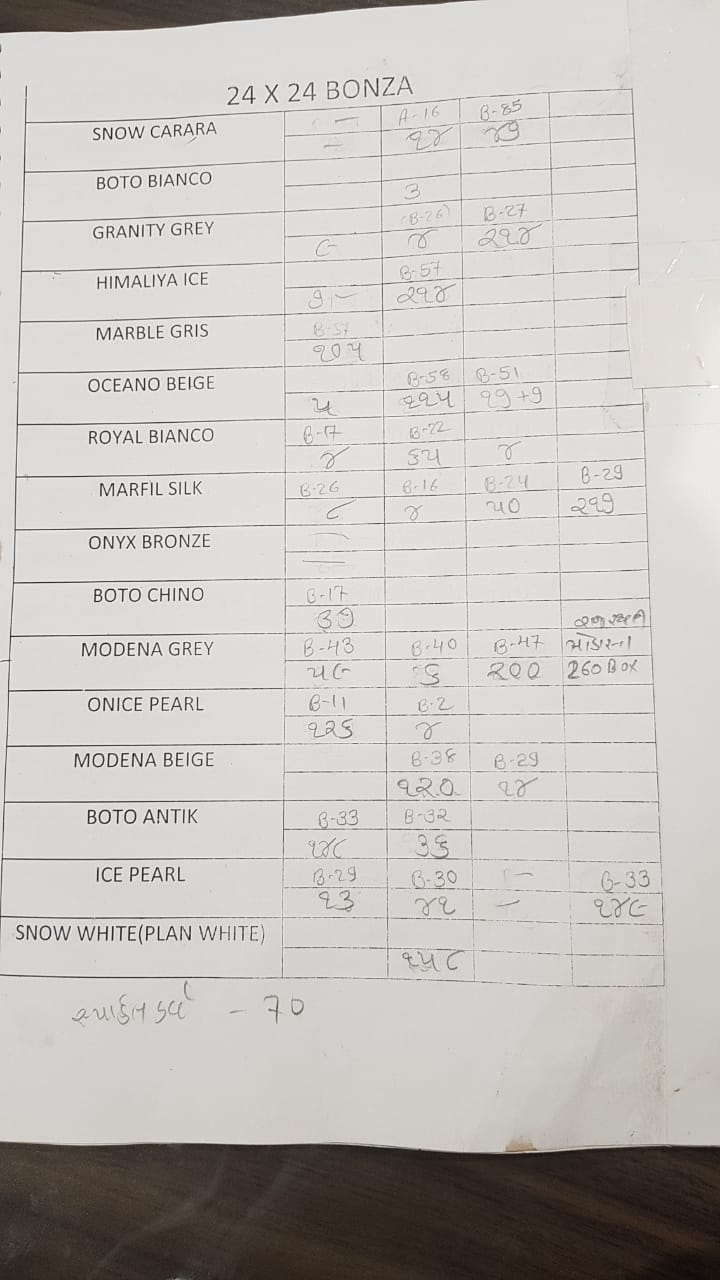 24 X 24 BONZA
SNOW CARARA – A-16 B-85
– ૧૪ ૪૭
BOTO BIANCO
૩
GRANITY GREY (B-26) B-27
૯ ૪ ૧૧૪
HIMALIYA ICE B-57
૭ – ૧૧૪
MARBLE GRIS B-57
૧૦૫
OCEANO BEIGE B-58 B-51
૫ ૧૧૫ ૧૧+૭
ROYAL BIANCO B-17 B-22
૪ ૬૫ ૪
MARFIL SILK B-26 B-16 B-24 B-29
૮ ૪ ૫૦ ૧૧૭
ONYX BRONZE –
–
BOTO CHINO B-17
૩૭
MODENA GREY B-43 B-40 B-47 મોડેના
૫૯ ૬ ૨૦૦ 260 Box
ONICE PEARL B-11 B-2
૧૨૬ ૪
MODENA BEIGE B-38 B-29
૧૨૦ ૧૪
BOTO ANTIK B-33 B-32
૧૪૮ ૩૬
ICE PEARL B-29 B-30 – B-33
૧૩ ૪૧ – ૧૪૯
SNOW WHITE(PLAN WHITE)
૧૫૮
– 70